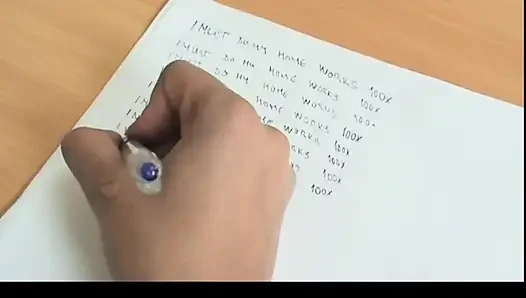 I MUST DO MY HOME WORKS 100X
I MUST DO MY HOME WORKS 100X
I MUST DO MY HOME WORKS 100X
I HOME WORKS 100X
I M WORKS 100X
I M WORKS 100X
I 100X
100X